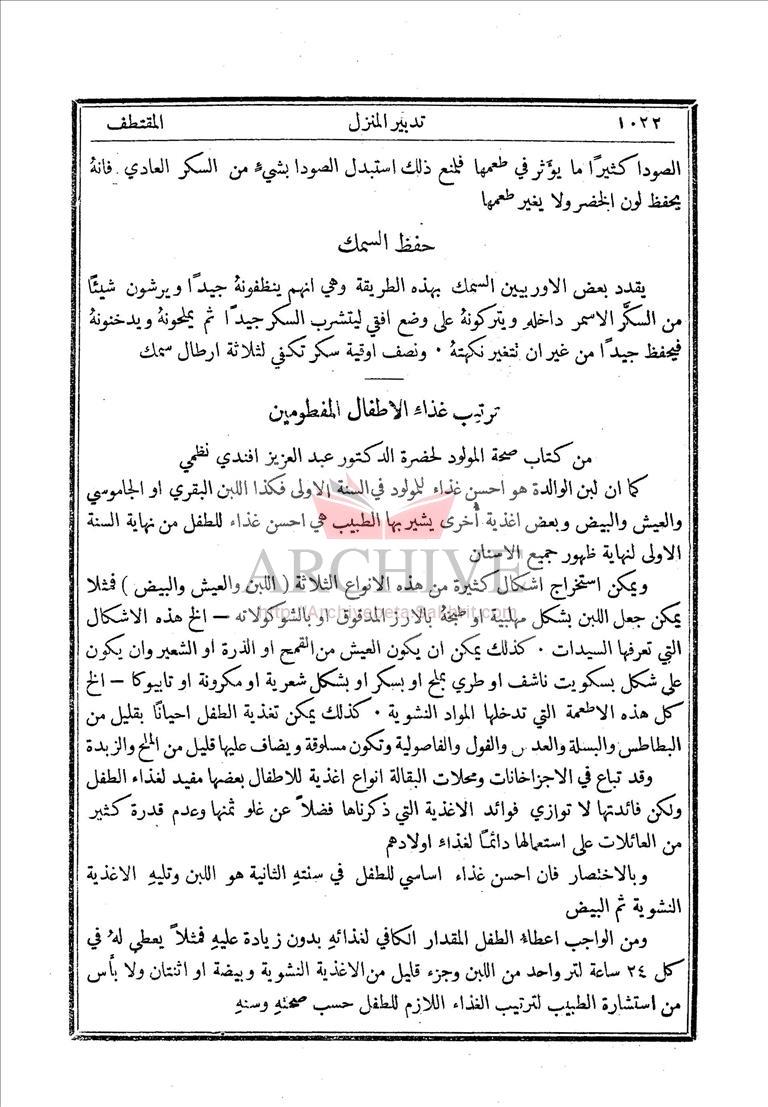 ١٠٢٢ تدبير المنزل المقتطف
الصودا كثيرًا ما يؤثر في طعمها فلمنع ذلك استبدل الصودا بشيءٍ من السكر العادي. فانهُ
يحفظ لون الخضر ولا يغير طعمها
حفظ السمك
يقدد بعض الاوربيين السمك بهذه الطريقة وهي انهم ينظفونهُ جيدًا ويرشون شيئًا
من السكَّر الاسمر داخلهِ ويتركونهُ على وضع افقي ليتشرب السكر جيدًا ثم يملحونهُ ويدخنونهُ
فيحفظ جيدًا من غير ان تتغير نكهتهُ ٠ ونصف اوقية سكر تكفي لثلاثة ارطال سمك
ترتيب غذاء الاطفال المفطومين
من كتاب صحة المولود لحضرة الدكتور عبد العزيز افندي نظمي
كما ان لبن الوالدة هو احسن غذاء للمولود في السنة الاولى فكذا اللبن البقري او الجاموسي
والعيش والبيض وبعض اغذية أُخرى يشير بها الطبيب هي احسن غذاء للطفل من نهاية السنة
الاولى لنهاية ظهور جميع الاسنان
ARCHIVE
ويمكن استخراج اشكال كثيرة من هذه الانواع الثلاثة ( اللبن والعيش والبيض ) فمثلا
http://Archivebeta.Sakhrit.com
يمكن جعل اللبن بشكل مهلبية او طبخة بالارز المدقوق او بالشوكولاته – الخ هذه الاشكال
التي تعرفها السيدات ٠ كذلك يمكن ان يكون العيش من القمح او الذرة او الشعير وان يكون
على شكل بسكويت ناشف او طري بملح او بسكر او بشكل شعرية او مكرونة او تابيوكا – الخ
كل هذه الاطعمة التي تدخلها المواد النشوية ٠ كذلك يمكن تغذية الطفل احيانًا بقليل من
البطاطس والبسلة والعدس والفول والفاصولية وتكون مسلوقة ويضاف عليها قليل من الملح والزبدة
وقد تباع في الاجزاخانات ومحلات البقالة انواع اغذية للاطفال بعضها مفيد لغذاء الطفل
ولكن فائدتها لا توازي فوائد الاغذية التي ذكرناها فضلاً عن غلو ثمنها وعدم قدرة كثير
من العائلات على استعمالها دائمًا لغذاء اولادهم
وبالاختصار فان احسن غذاء اساسي للطفل في سنتهِ الثانية هو اللبن وتليهِ الاغذية
النشوية ثم البيض
ومن الواجب اعطاءُ الطفل المقدار الكافي لغذائهِ بدون زيادة عليهِ فمثلاً يعطى لهُ في
كل ٢٤ ساعة لتر واحد من اللبن وجزء قليل من الاغذية النشوية وبيضة او اثنتان ولا بأس
من استشارة الطبيب لترتيب الغذاء اللازم للطفل حسب صحتهِ وسنهِ